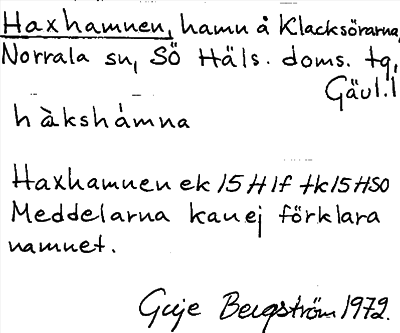 Haxhamnen, hamn å Klacksörarna,
Norrala sn, SÖ Häls. doms. tg,
Gävl. l
hàkshámna
Haxhamnen ek 15H1f tk15HSO
Meddelarna kan ej förklara
namnet.
Bergström 1972.